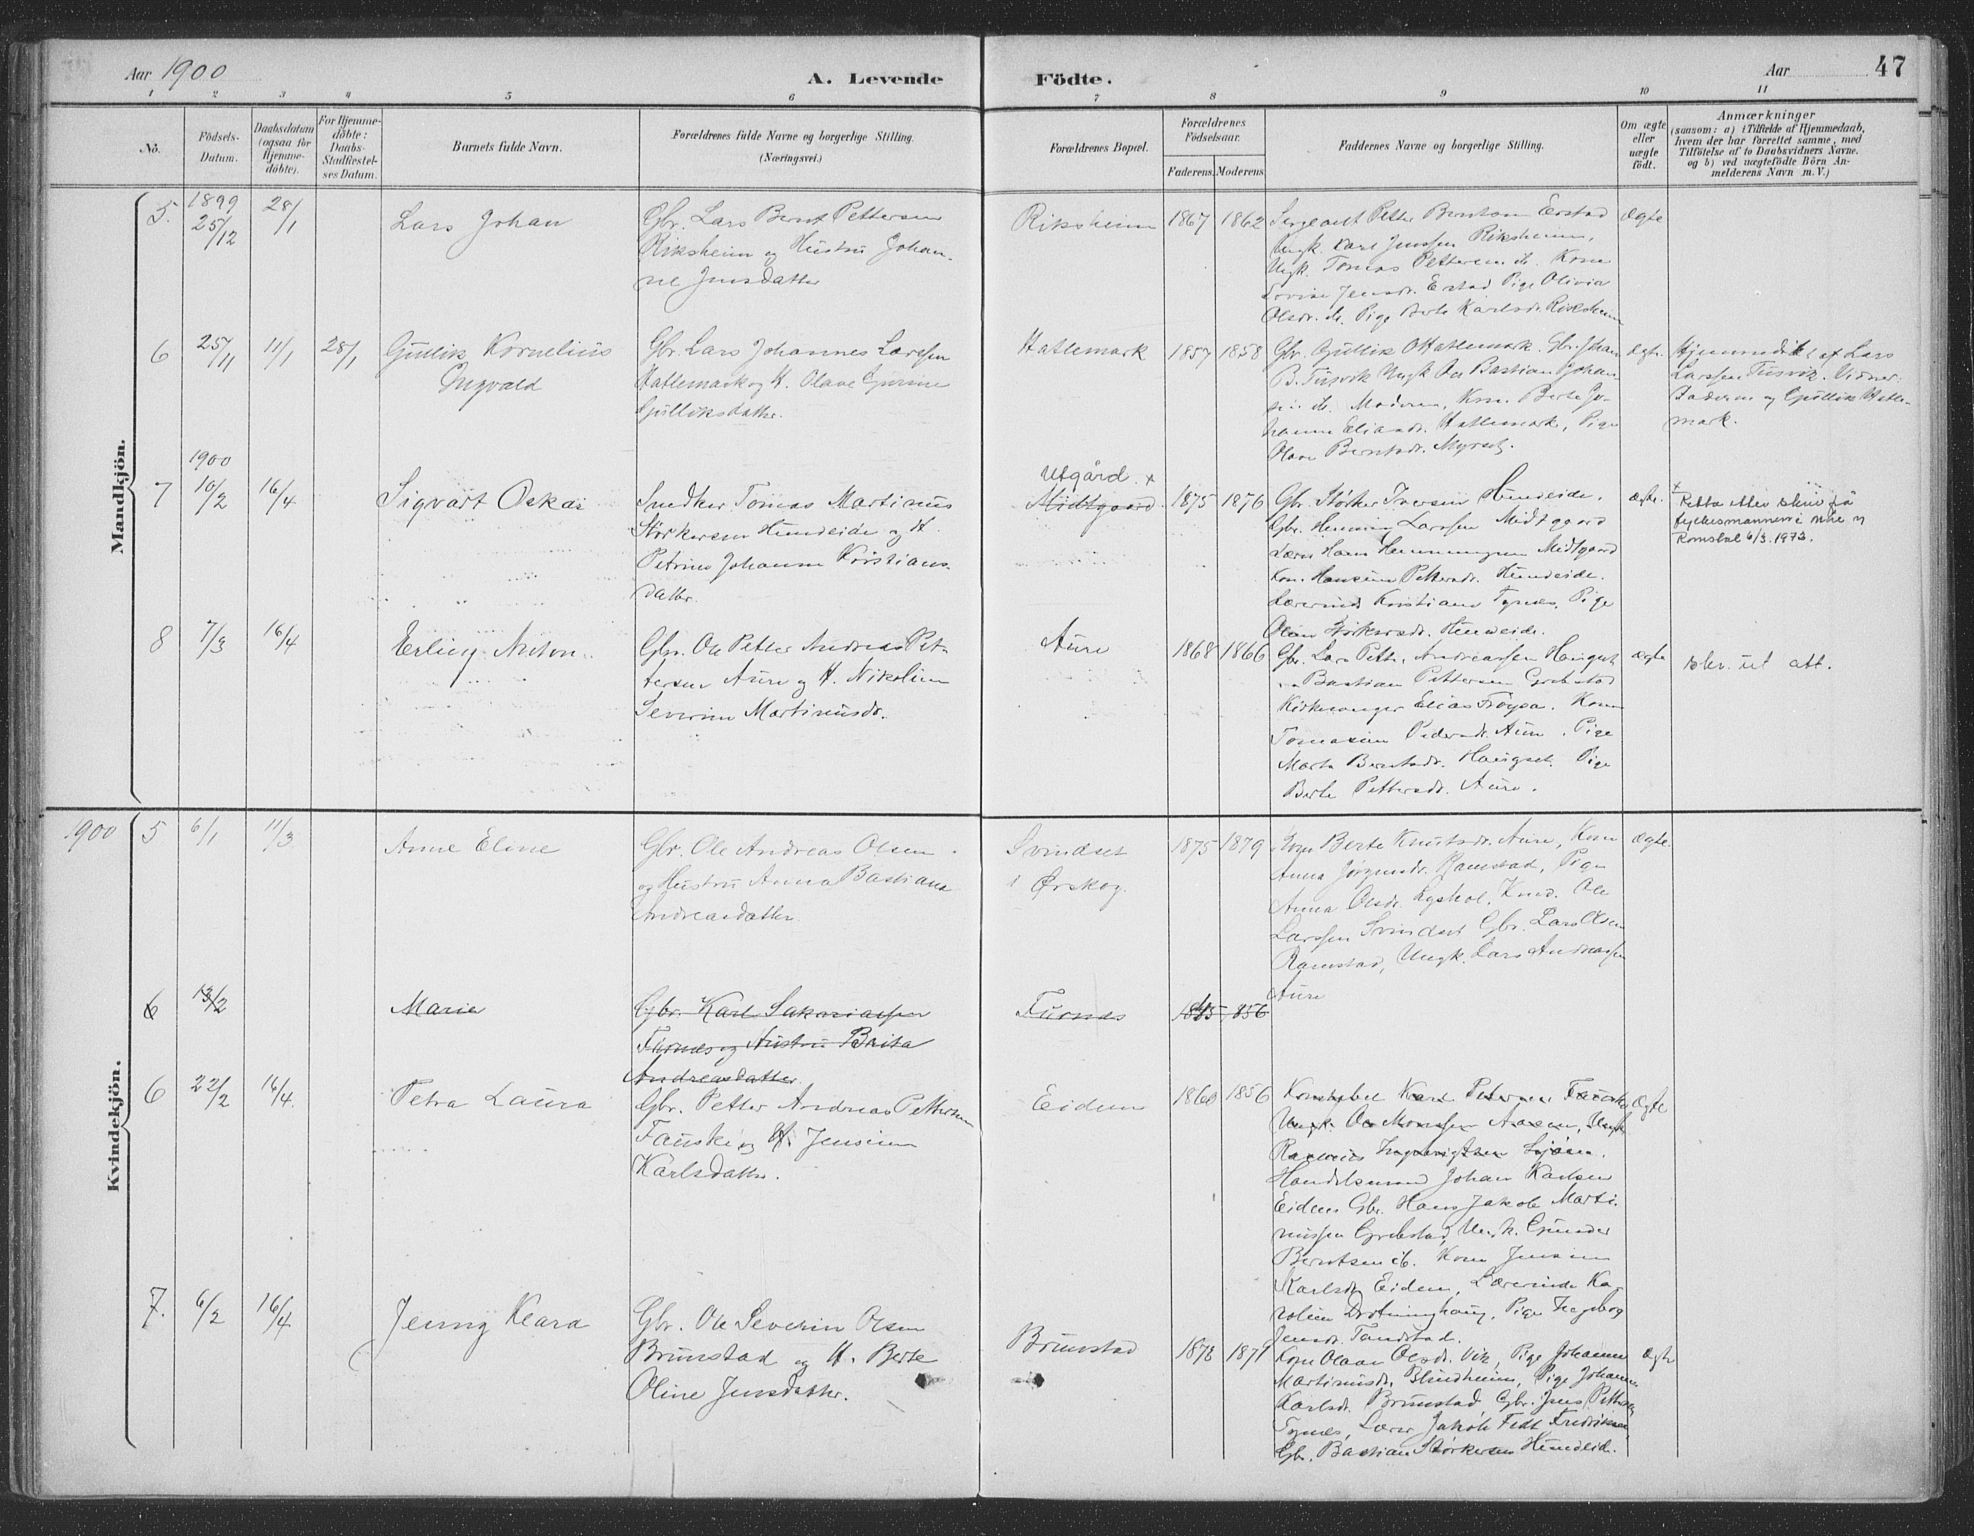 Aar 1900
A. Levende
Födte.
Aar
47
1 2 3 4 5 6 7 8 9 10 11
No.
Födsels-
Datum.
Daabsdatum
(ogsaa for
Hjemme-
döbte).
For Hjemme-
döbte:
Daabs-
Stadfæstel-
ses Datum.
Barnets fulde Navn.
Forældrenes fulde Navne og borgerlige Stilling.
(Næringsvei.)
Forældrenes Bopæl.
Forældrenes
Födselsaar.
Faderens.
Moderens.
Faddernes Navne og borgerlige Stilling.
Om ægte
eller
uægte
födt.
Anmærkninger
(saasom: a) i Tilfælde af Hjemmedaab,
hvem der har forrettet samme, med
Tilföielse af to Daabsvidners Navne.
og b) ved uægtefödte Börn An-
melderens Navn m. V.)
Mandkjön.
5. 1899 25/12 28/1 Lars Johan
Gbr. Lars Bernt Pettersen
Riksheim og Hustru Johan-
ne Jensdatter
Riksheim 1867 1862
Sergeant Petter Berntsen Erstad
Ungk. Karl Jenssen Riksheim,
Ungk. Tomas Pettersen ib. Kone
Lovise Jensdr. Erstad Pige Olivia
Olsdr. ib. Pige Berte Karlsdr. Riksheim
ægte
6 25/11 11/1 28/1 Gullik Kornelius
Ingvald
Gbr. Lars Johannes Larssen
Hatlemark og H. Olave Gurine
Gulliksdatter.
Hatlemark 1857 1858
Gbr. Gullik O Hatlemark. Gbr. Johan
B. Tusvik Ungk Ole Bastian Johan-
sen ib. Moderen, Kone Berte Jo-
hanne Eliasdr. Hatlemark, Pige
Olave Berntsdr. Myrset.
Hjemmedöbt af Lars
Larssen Tusvik. Vidner:
Faderen og Gullik Hatle-
mark.
7 1900 10/2 16/4 Sigvart Oskar
Snedker Tomas Martinus
Störkersen Hundeide og H.
Petrine Johanne Kristians-
datter.
Utgård x
Midtgaard. 1875 1876
Gbr. Störker Iversen Hundeide.
Gbr. Henning Larssen Midtgaard
Lærer Hans Henningsen Midtgaard
Kone Hansine Pettersdr. Hundeide.
Lærerinde Kristiane Tynes, Pige
Olave Störkersdr. Hundeide.
ægte.
x
Retta etter skriv frå
fylkesmannen i Møre og
Romsdal 6/3.1973.
8 7/3 16/4 Erling Anton
Gbr. Ole Petter Andreas Pet-
tersen Aure og H. Nikoline
Severine Martinusdr.
Aure 1868 1866
Gbr. Lars Petter Andreassen Haugset
Bastian Pettersen Grebstad
Kirkesanger Elias Fröysa. Kone
Tomasine Pedersdr. Aure. Pige
Marta Berntsdr. Haugset. Pige
Berte Pettersdr. Aure.
ægte
skr. ut att.
Kvindekjön.
1900 5 6/1 11/3 Anne Eline
Gbr. Ole Andreas Olsen
og Hustru Anna Bastiana
Andreasdatter.
Svindset
i Ørskog. 1875 1879
Kone Berte Knutsdr. Aure, Kone
Anna Jörgensdr. Ramstad, Pige
Anna Olsdr. Lyshol, Ole
Larssen Svindset Gbr. Lars Olsen
Ramstad, Ungk. Lars Andreassen
Aure
ægte
6 13/2 Marie
Gbr. Karl Sakariassen
Furnes og Hustru Brita
Andreasdatter
Furnes 1856
6 22/2 16/4. Petra Laura
Gbr. Petter Andreas Pettersen
Fauske og H. Jensine
Karlsdatter.
Eidem 1860 1856
Konstabel Karl Petersen Fauske,
Ungk. Ole Monssen Aasen, Ungk
Rasmus Ingebrigtsen Sjöen.
Handelsmand Johan Karlsen
Eidem Gbr. Hans Jakob Marti-
nussen Grebstad, Ungk. Gunder
Berntsen ib. Kone Jensine
Karlsdr. Eidem, Lærerinde Ka-
roline Drotninghaug, Pige Ingeborg
Jensdr. Tandstad.
ægte
7. 6/2 16/4 Jenny Klara
Gbr. Ole Severin Olsen
Brunstad og H. Berte
Oline Jensdatter.
Brunstad 1878 1879
Kone Olave Olsdr. Vik, Pige Johanne
Martinusdr. Blindheim, Pige Johanne
Karlsdr. Brunstad, Gbr. Jens Pettersen
Tynes, Lærer Jakob Fedt Fredriksen,
Gbr. Bastian Störkersen Hundeide.
ægte